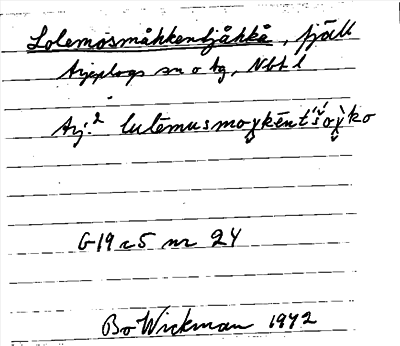 Lolemösmåhkkentjåhkå, fjäll
Arjeplogs sn o tg, Nbt l
Arj.² lulēmusmoχkēnt'š́oχ̀ko
G 19 c 5 nr 24
Bo Wickman 1972